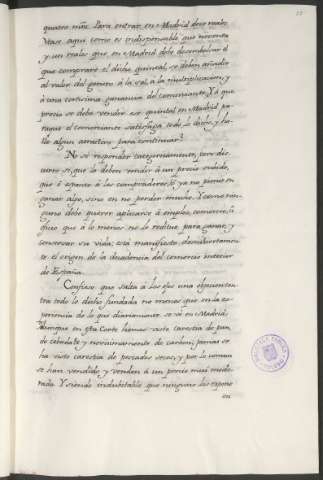 quatro mñs. Para entrar en Madrid doce reales.
Vease aqui como es indispensable que noventa
y un reales que en Madrid debe desembolsar el
que comprare el dicho quintal, se deben añadir
al valor del genero á la sal, á la
á una cortisima ganancia del comerciante. Y á que
precio se debe vender ese quintal en Madrid pa-
ra que el comerciante satisfaga todo lo dicho, y ha-
lle algun atractivo para continuar?
No sé responder categoricamente, pero dis-
curro si, que lo deben vender á un precio subido,
que ó espante á los compradores, ó ya no piense en
ganar algo, sino en no perder mucho. Y como nin-
guno debe querer aplicarse á empleo, comercio, ú
oficio que á lo menos no le reditue para ganar, y
conservar su vida; está manifiesto demostrativamen-
te el origen de la decadencia del comercio interior
de España.
Confieso que salta á los ojos una
tra todo lo dicho fundada no menos que en la ex-
periencia de lo que diariamente se vé en Madrid.
Aunque en esta Corte hemos visto carestia de pan,
de cebada, y novisimamente de carbon; jamas se
ha visto carestia de pescados secos, y por lo comun
se han vendido, y venden á un precio mui mode-
rado. Y siendo indubitable que ninguno los expone
en